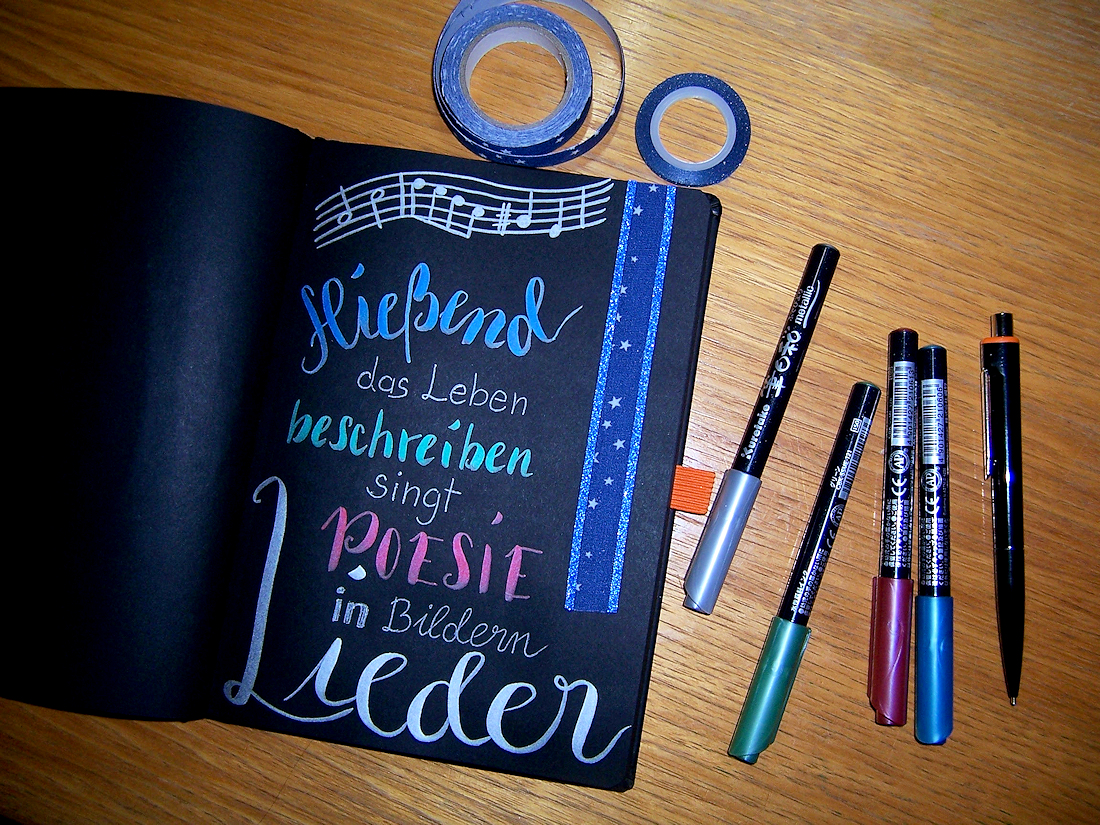 fließend
das Leben
beschreiben
singt
POESIE
in Bildern
Lieder
Kuretake
metallic